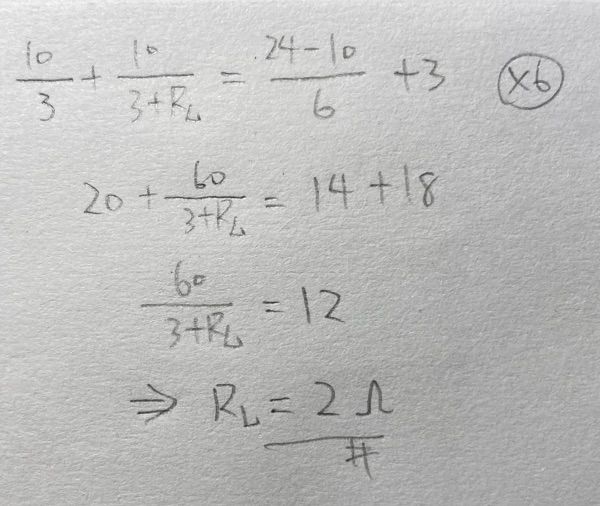 10/3 + 10/(3+R_L) = (24-10)/6 + 3 ×6
20 + 60/(3+R_L) = 14 + 18
60/(3+R_L) = 12
⇒ R_L = 2 Ω
#